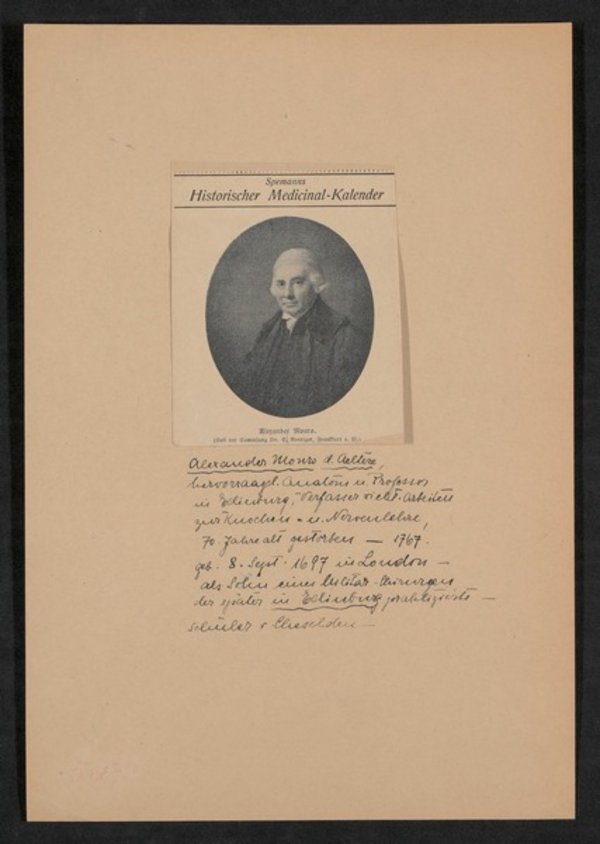 Spemanns
Historischer Medicinal-Kalender
Alexander Monro.
(Aus der Sammlung Dr. E. Frankfurt a. M.)
Alexander Monro d. Aeltere,
hervorragd. Anatom u. Professor
in Edinburg, Verfasser Arbeiten
zur Knochen- u. Nervenlehre,
70 Jahre alt gestorben — 1767.
geb. 8. Sept. 1697 in London —
als Sohn eines Militär-Chirurgen
der später in Edinburg praktizierte —
Schüler v Cheselden —